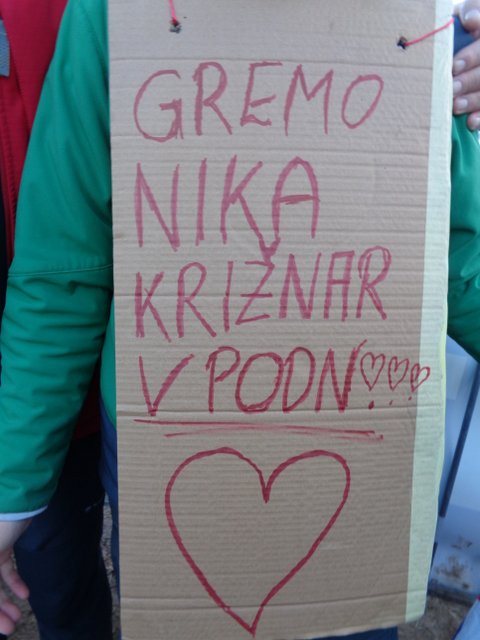 GREMO
NIKA
KRIŽNAR
V PODN!!!